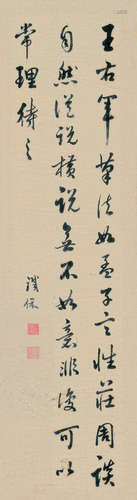 王右軍筆法如孟子言性莊周談
自然從說橫說無不如意非復可以
常理待之